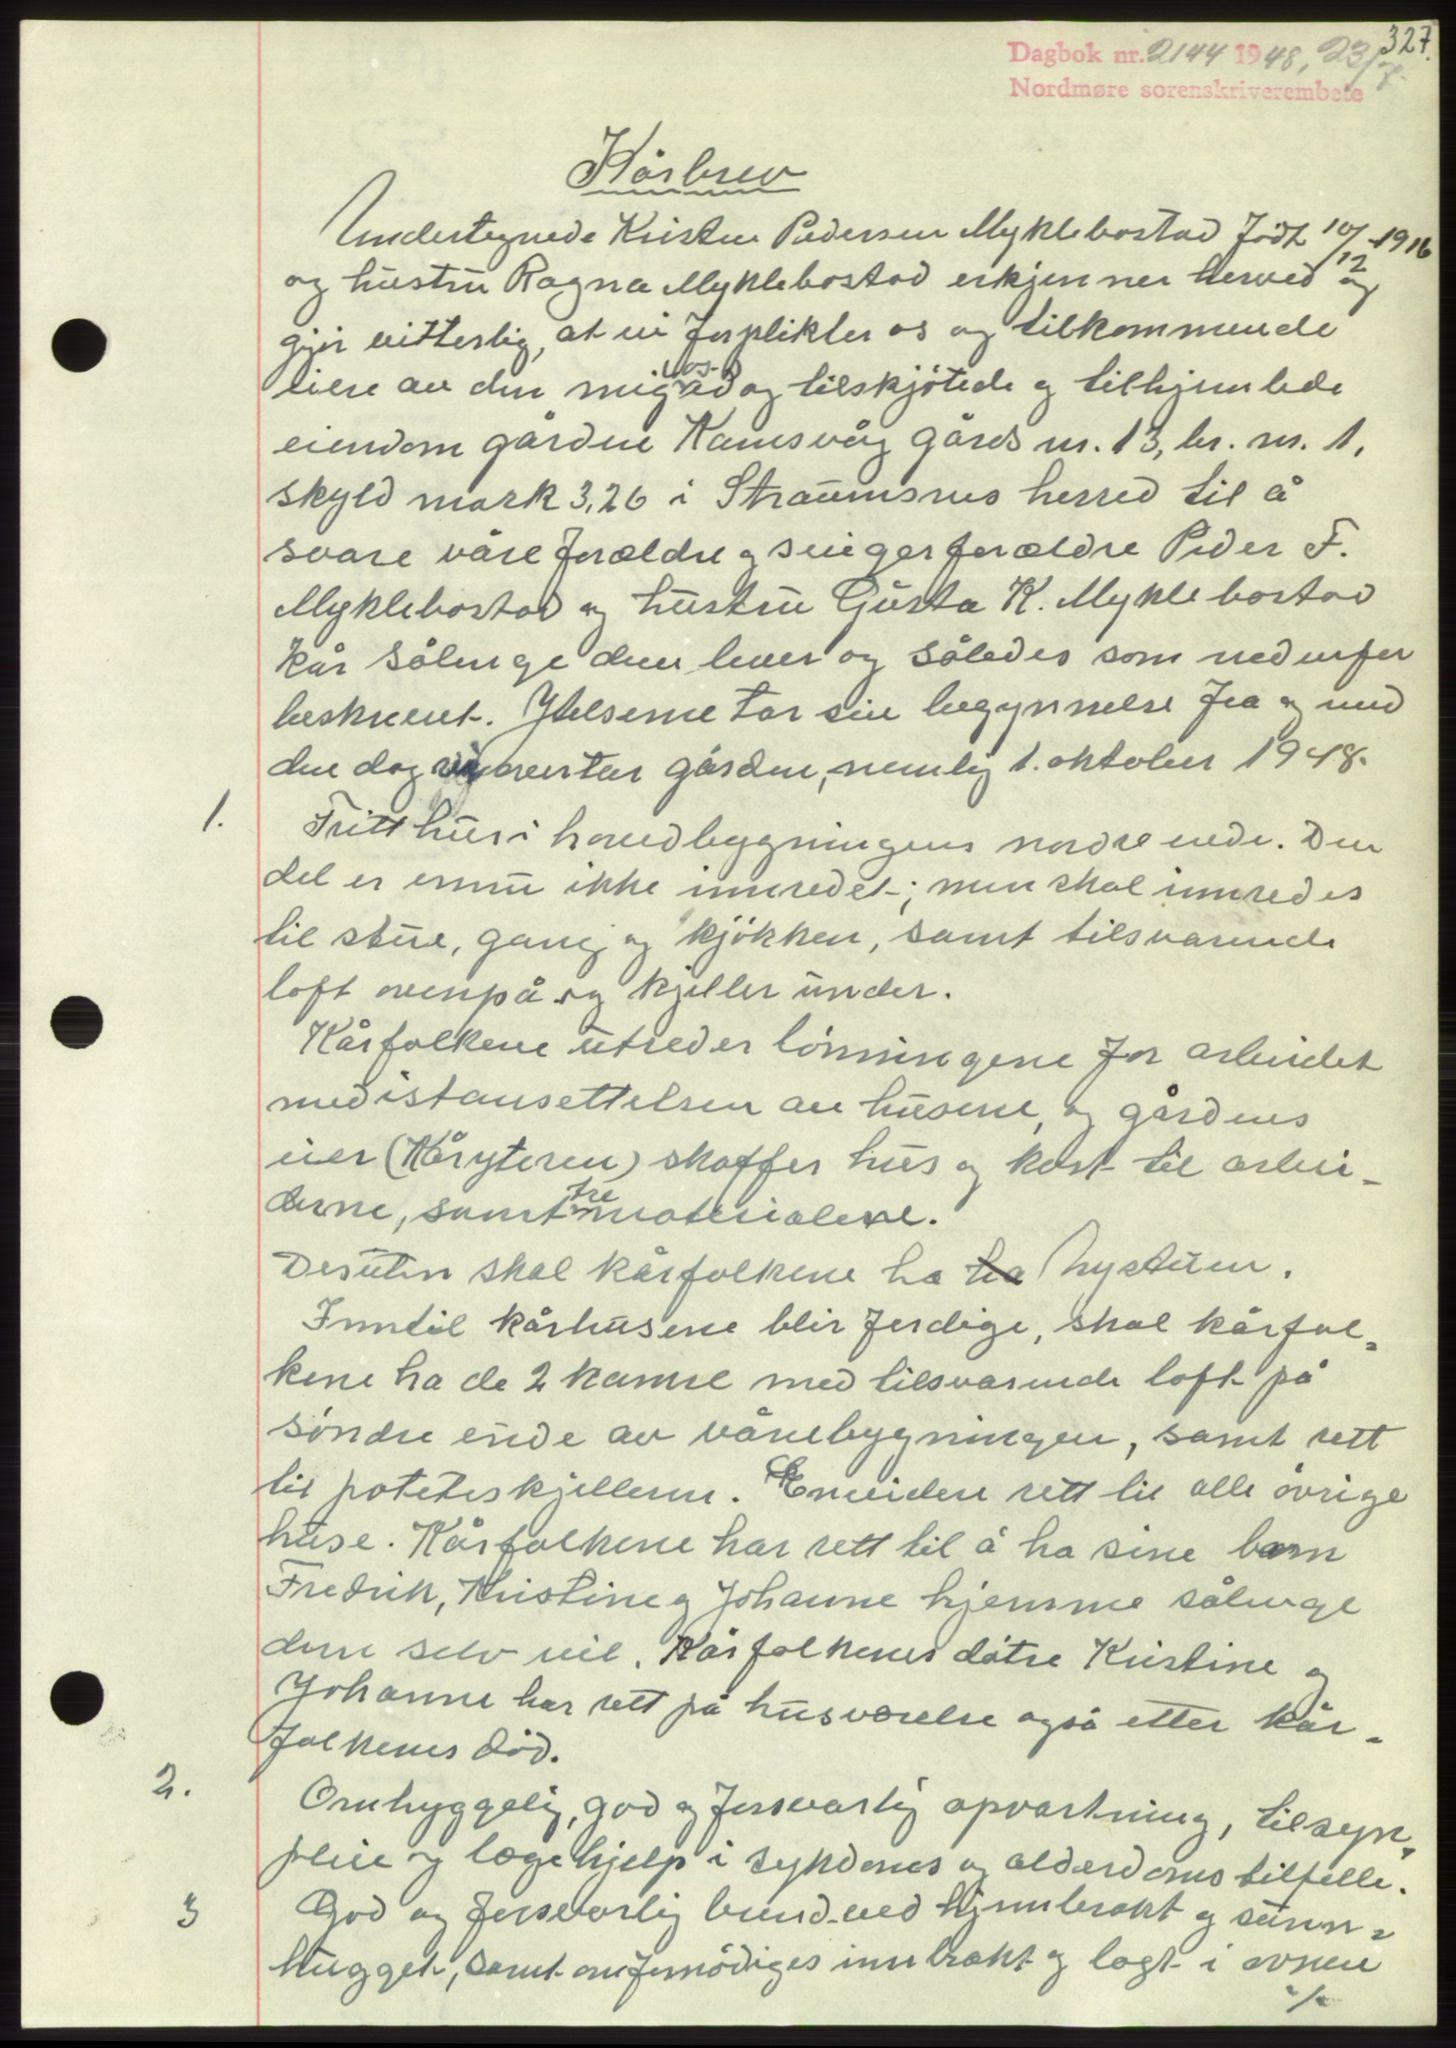 327.
Dagbok nr. 2144 1948, 23/7
Nordmøre sorenskriverembete
Kårbrev
Undertegnede Kristen Pedersen Myklebostad født 10/12-1916
og hustru Ragna Myklebostad erkjenner herved og
gjør vitterlig, at vi forplikter os og tilkommende
eiere av den mig tilskjötede og tilhjemlede
eiendom gården Kamsvåg gårds nr. 13, br. nr. 1,
skyld mark 3,26 i Straumsnes herred til å
svare våre forældre og svigerforældre Peder F.
Myklebostad og hustru Gusta K. Myklebostad
kår sålenge dem lever og således som nedenfor
beskrevet. Ytelserne tar sin begynnelse fra og med
den dag vi overtar gården, nemlig 1. oktober 1948.
1. Fritt hus i hovedbygningens nordre ende. Den
del er ennu ikke innredet; men skal innredes
til stue, gang og kjökken, samt tilsvarende
loft ovenpå og kjeller under.
Kårfolkene utreder lönningene for arbeidet
med istansettelsen av husene, og gårdens
eier (Kåryteren) skaffer hus og kost til arbei-
derne, samt trematerialene.
Desuten skal kårfolkene ha ha Nystuen.
Inntil kårhusene blir ferdige, skal kårfol-
kene ha de 2 kamre med tilsvarende loft på
söndre ende av vånebygningen, samt rett
til poteteskjelleren. Envidere rett til alle övrige
huse. Kårfolkene har rett til å ha sine barn
Fredrik, Kristine og Johanne hjemme sålenge
dem selv vil. Kårfolkenes dötre Kristine og
Johanne har rett på husværelse også etter kår-
folkenes död.
2. Omhyggelig, god og forsvarlig opvartning, tilsyn,
pleie og lægehjelp i sykdoms og alderdoms tilfelle.
3 God og forsvarlig brendeved hjembrakt og smn-
hugget, samt om fornödiges innbrakt og lagt i ovnen
./.